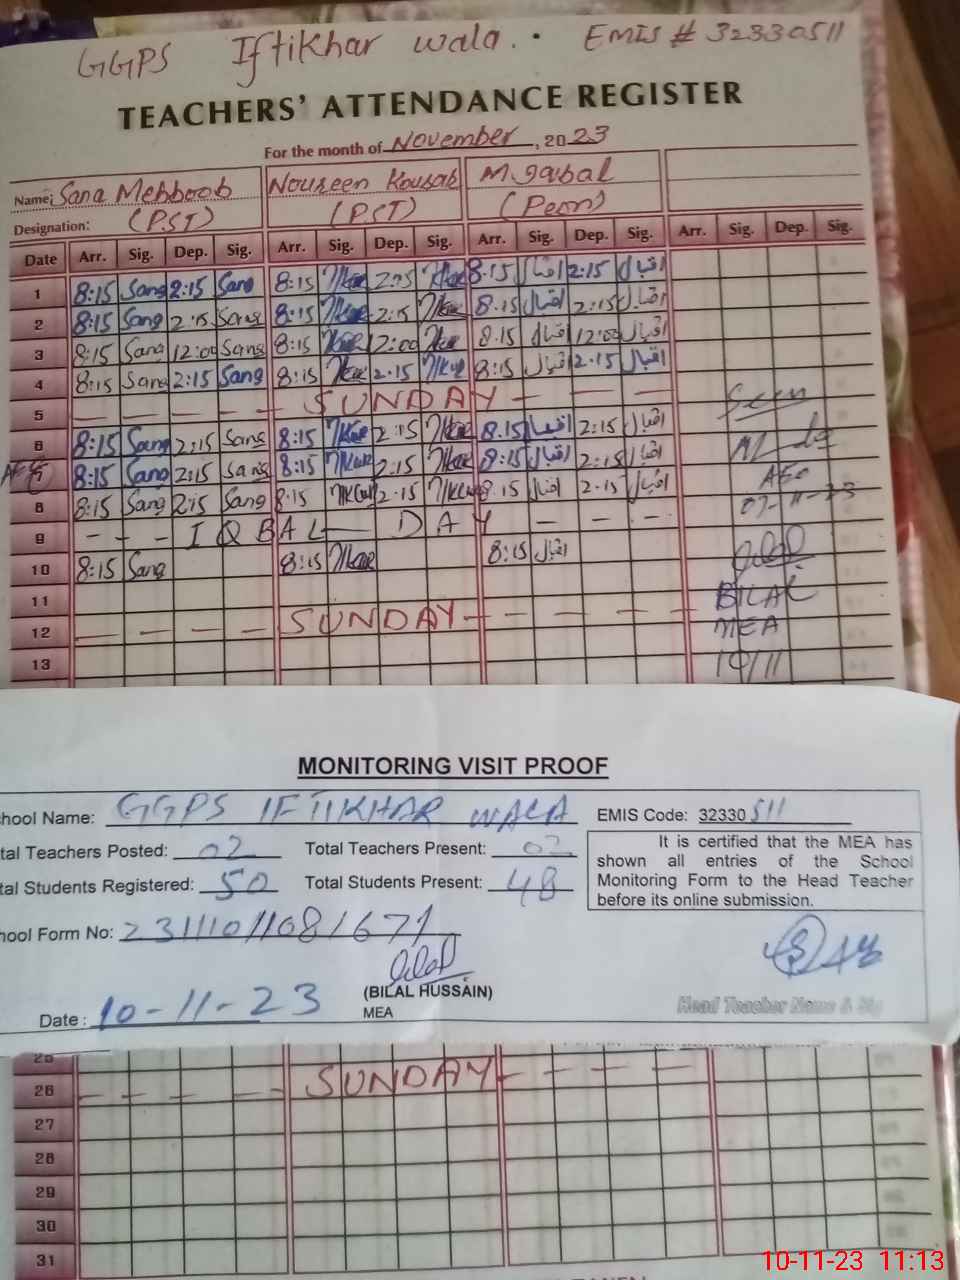 GGPS Iftikhar wala. EMIS # 32330511
TEACHERS' ATTENDANCE REGISTER
For the month of November, 2023
Name: Sana Mehboob Noureen Kousar M.Iqbal
Designation: (PST) (PST) (Peon)
Date Arr. Sig. Dep. Sig. Arr. Sig. Dep. Sig. Arr. Sig. Dep. Sig. Arr. Sig. Dep. Sig.
1 8:15 Sana 2:15 Sana 8:15 2:15 8:15 اقبال 2:15 اقبال
2 8:15 Sana 2:15 Sana 8:15 2:15 8:15 اقبال 2:15 اقبال
3 8:15 Sana 12:00 Sana 8:15 12:00 8:15 اقبال 12:00 اقبال
4 8:15 Sana 2:15 Sana 8:15 2:15 8:15 اقبال 2:15 اقبال
5 - - - - SUNDAY - - - -
Seen
6 8:15 Sana 2:15 Sana 8:15 2:15 8:15 اقبال 2:15 اقبال
7 8:15 Sana 2:15 Sana 8:15 2:15 8:15 اقبال 2:15 اقبال
AEO
8 8:15 Sana 2:15 Sana 8:15 2:15 8:15 اقبال 2:15 اقبال
07-11-23
9 - - - IQBAL - DAY - - -
10 8:15 Sana 8:15 8:15 اقبال
11 BILAL
12 - - - - SUNDAY - - - - - MEA
13 10/11
MONITORING VISIT PROOF
hool Name: GGPS IFTIKHAR WALA EMIS Code: 32330511
tal Teachers Posted: 02 Total Teachers Present: 02
tal Students Registered: 50 Total Students Present: 48
It is certified that the MEA has
shown all entries of the School
Monitoring Form to the Head Teacher
before its online submission.
hool Form No: 
Bilal
(BILAL HUSSAIN)
MEA
Head Teacher Name &
Date: 10-11-23
25
26 - - - - SUNDAY - - - -
27
28
29
30
31
10-11-23 11:13